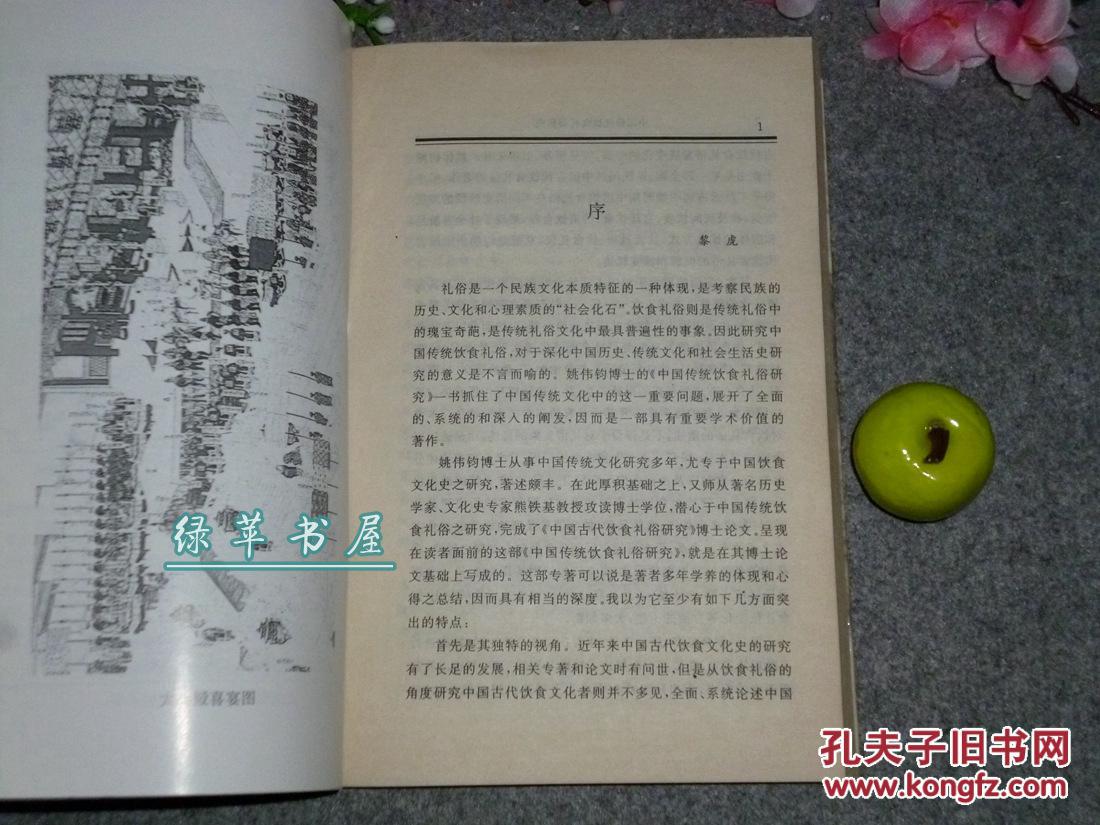 1
序
黎 虎
礼俗是一个民族文化本质特征的一种体现,是考察民族的
历史、文化和心理素质的“社会化石”。饮食礼俗则是传统礼俗中
的瑰宝奇葩,是传统礼俗文化中最具普遍性的事象。因此研究中
国传统饮食礼俗,对于深化中国历史、传统文化和社会生活史研
究的意义是不言而喻的。姚伟钧博士的《中国传统饮食礼俗研
究》一书抓住了中国传统文化中的这一重要问题,展开了全面
的、系统的和深入的阐发,因而是一部具有重要学术价值的
著作。
姚伟钧博士从事中国传统文化研究多年,尤专于中国饮食
文化史之研究,著述颇丰。在此厚积基础之上,又师从著名历史
学家、文化史专家熊铁基教授攻读博士学位,潜心于中国传统饮
食礼俗之研究,完成了《中国古代饮食礼俗研究》博士论文。呈现
在读者面前的这部《中国传统饮食礼俗研究》,就是在其博士论
文基础上写成的。这部专著可以说是著者多年学养的体现和心
得之总结,因而具有相当的深度。我以为它至少有如下几方面突
出的特点:
首先是其独特的视角。近年来中国古代饮食文化史的研究
有了长足的发展,相关专著和论文时有问世,但是从饮食礼俗的
角度研究中国古代饮食文化者则并不多见,全面、系统论述中国
绿苹书屋
孔夫子旧书网
www.kongfz.com